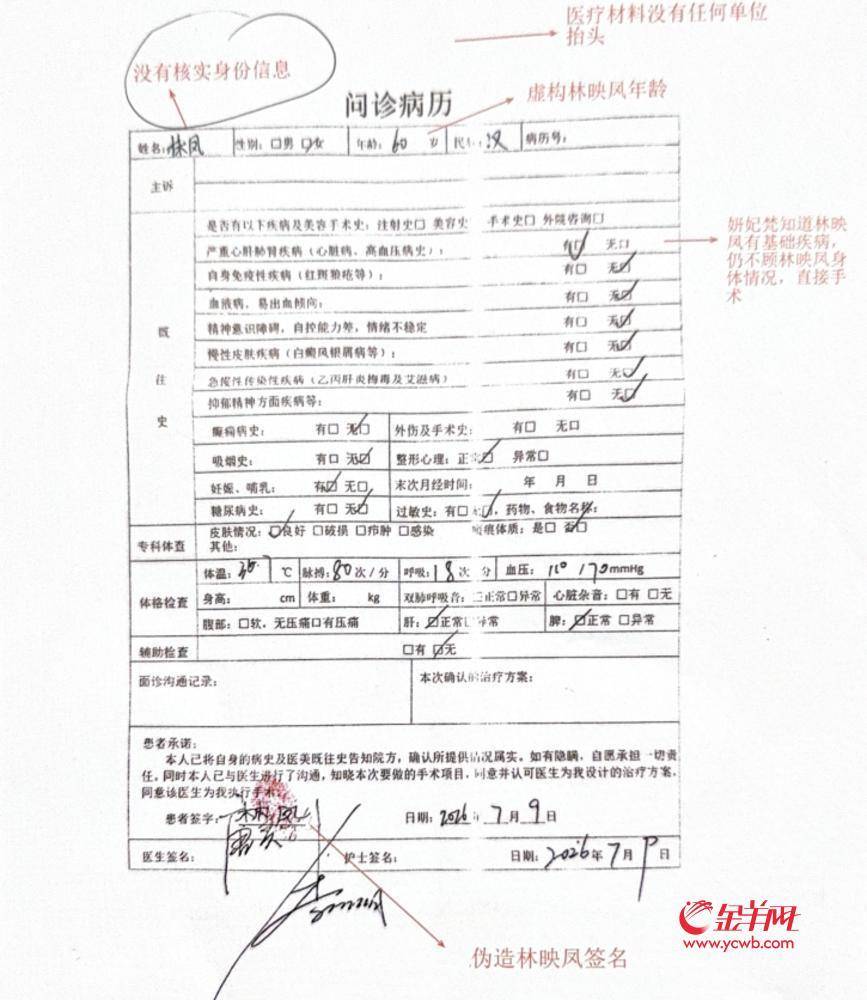 医疗材料没有任何单位
抬头
没有核实身份信息
虚构林映凤年龄
问诊病历
姓名：林凤 性别：口男 口女 年龄：60 岁 民族：汉 病历号：
主诉
既往史
是否有以下疾病及美容手术史：注射史口 美容史 手术史口 外院咨询口
严重心肝肺肾疾病（心脏病、高血压病史）： 有☑ 无口
妍妃梵知道林映
凤有基础疾病，
仍不顾林映凤身
体情况，直接手
术
自身免疫性疾病（红斑狼疮等）： 有口 无☑
血液病，易出血倾向： 有口 无☑
精神意识障碍，自控能力差，情绪不稳定 有口 无☑
慢性皮肤疾病（白癜风银屑病等）： 有口 无☑
急慢性传染性疾病（乙丙肝炎梅毒及艾滋病） 有口 无☑
抑郁精神方面疾病等： 有口 无☑
癫痫病史： 有口 无☑ 外伤及手术史： 有口 无口
吸烟史： 有口 无☑ 整形心理：正常☑ 异常口
妊娠、哺乳： 有☑ 无口 末次月经时间： 年 月 日
糖尿病史： 有口 无☑ 过敏史：有口 无☑，药物、食物名称：
专科体查
皮肤情况：☑良好 口破损 口疖肿 口感染 瘢痕体质：是口 否☑
其他：
体格检查
体温：36.7 ℃ 脉搏：80次／分 呼吸：18次 分 血压：110 / 70mmHg
身高： cm 体重： kg 双肺呼吸音：口正常口异常 心脏杂音：口有 口无
腹部：口软，无压痛口有压痛 肝：☑正常口异常 脾：☑正常 口异常
辅助检查 口有 ☑无
面诊沟通记录： 本次确认的治疗方案：
患者承诺：
本人已将自身的病史及医美既往史告知院方，确认所提供情况属实。如有隐瞒，自愿承担一切责
任。同时本人已与医生进行了沟通，知晓本次要做的手术项目，同意并认可医生为我设计的治疗方案，
同意该医生为我执行手术。
患者签字：林凤 日期：2026年 7 月 9 日
医生签名： 护士签名： 日期：2026年 7 月 9 日
伪造林映凤签名
金羊网
www.ycwb.com